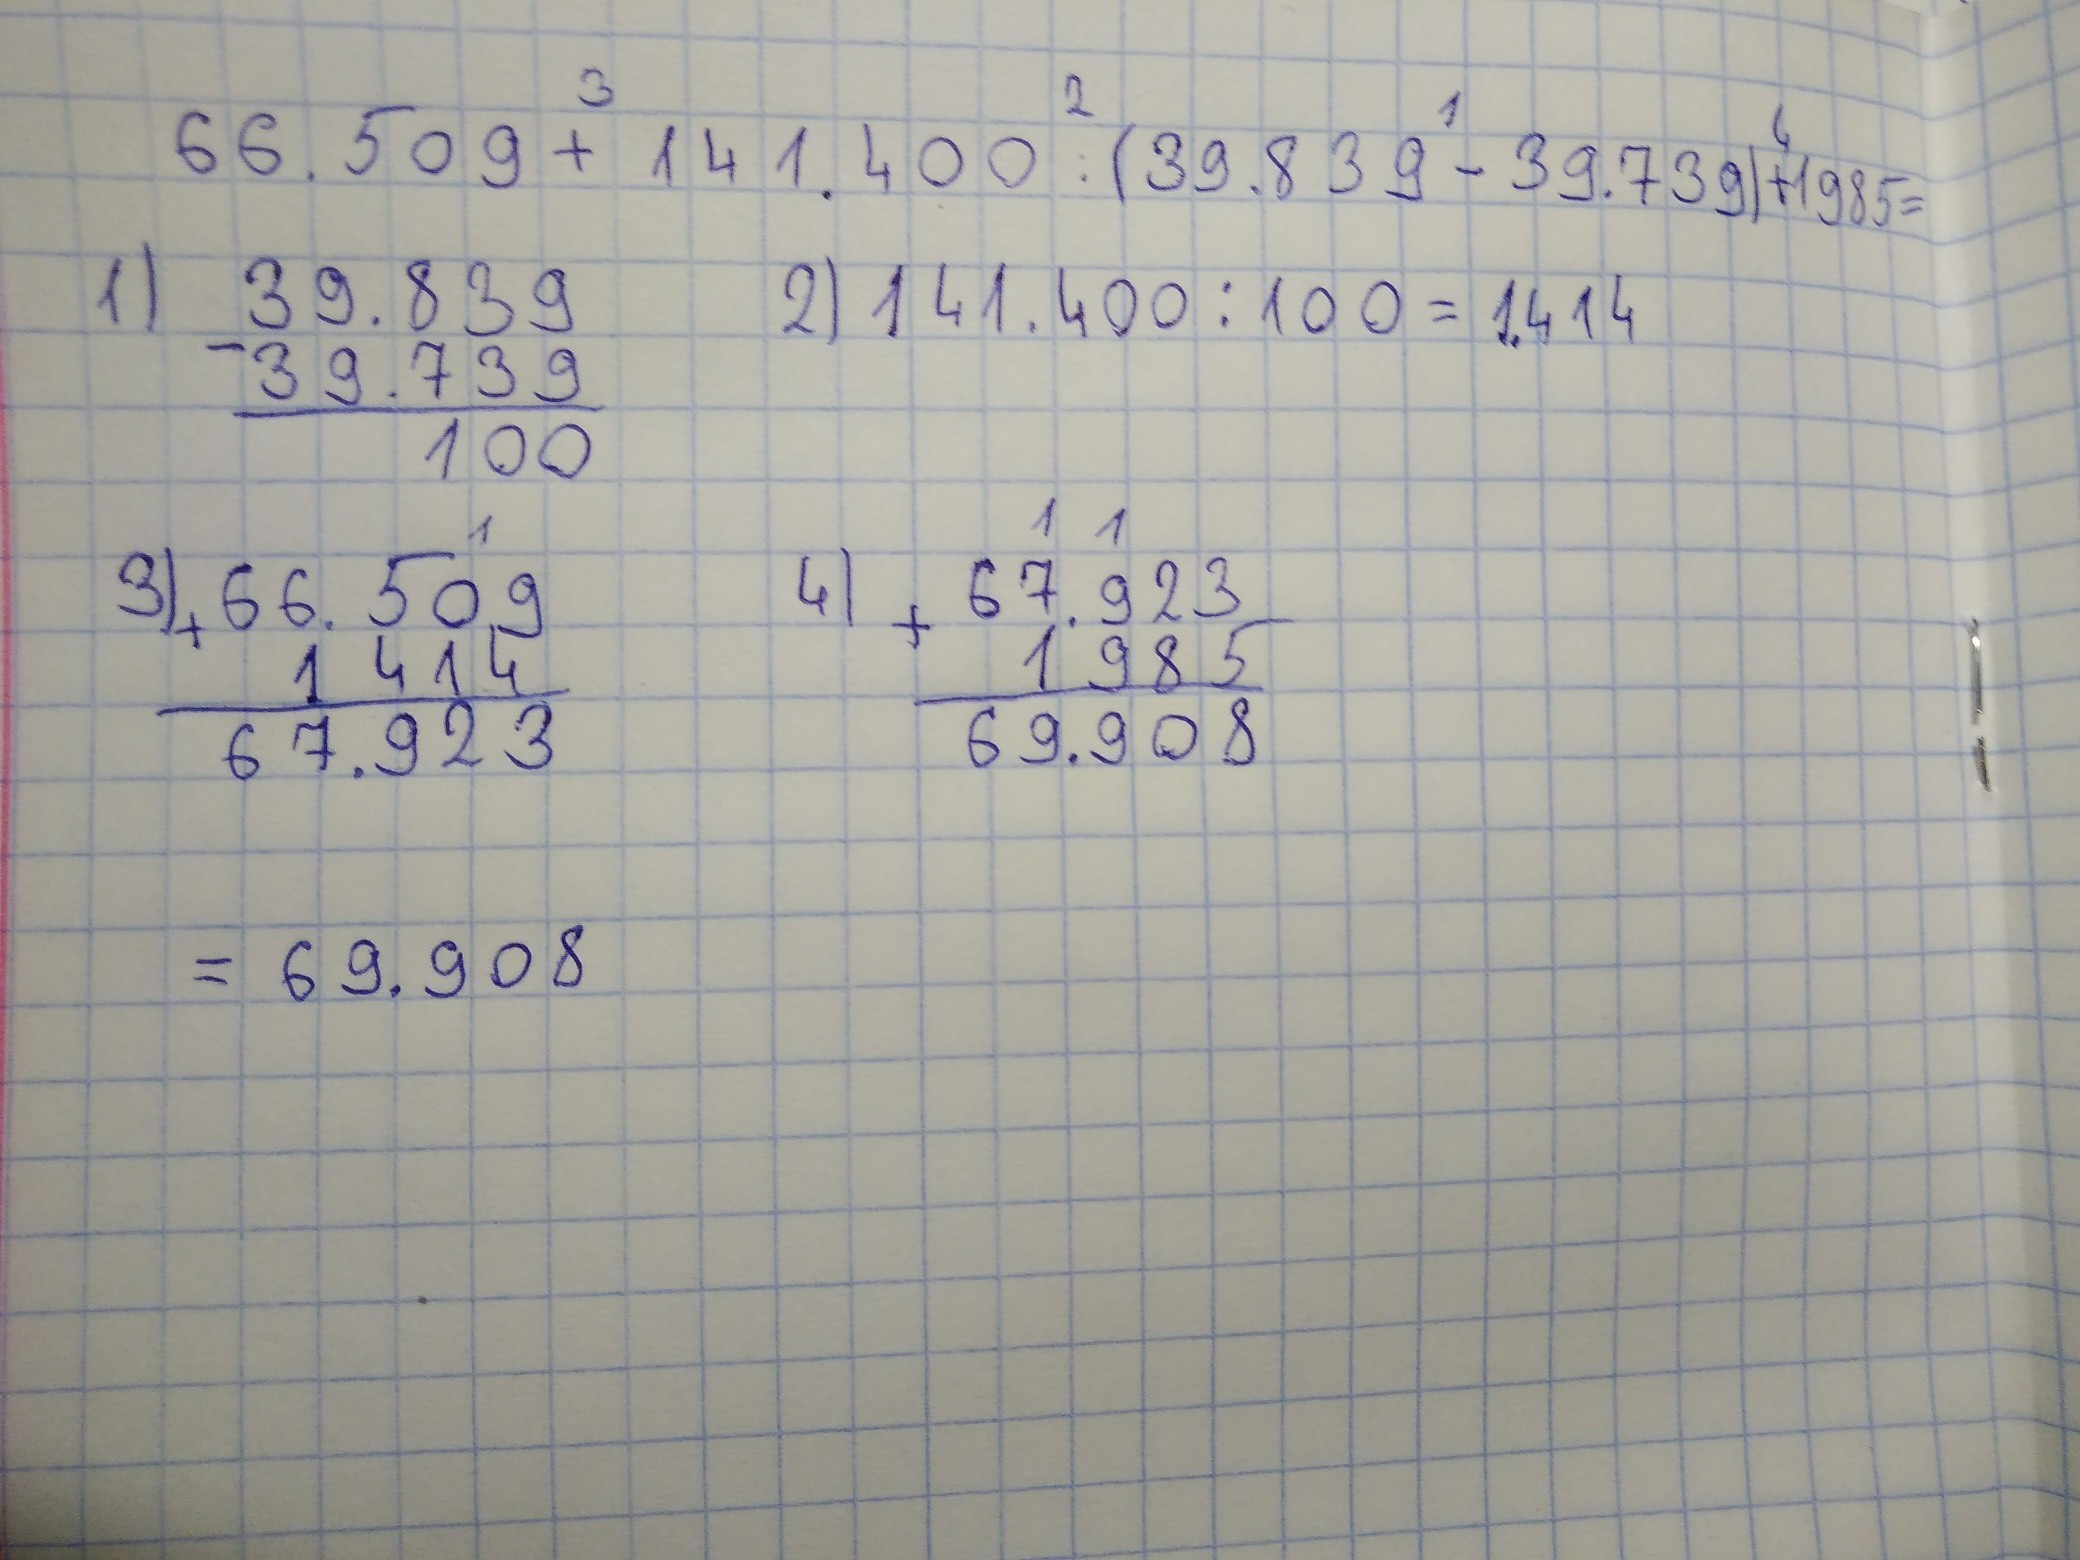 3 2 1 4
66.509 + 141.400 : (39.839 - 39.739) + 1985 =
1) 39.839
- 39.739
100
2) 141.400 : 100 = 1.414
1
3) + 66.509
1 414
67.923
1 1
4) + 67.923
1 985
69.908
= 69.908